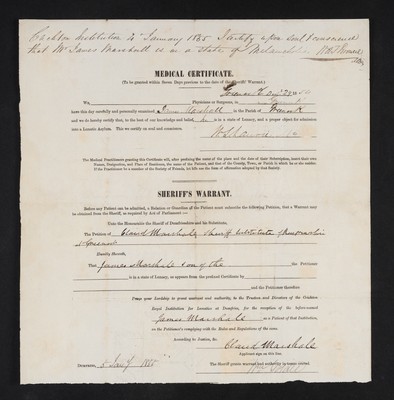 Institution 4 January 1855 I certify upon soul & conscience
that Mr James Marshall is in a state of Melancholia
MEDICAL CERTIFICATE.
(To be granted within Seven Days previous to the date of the Sheriff's Warrant.)
We, Physicians or Surgeons, in
have this day carefully and personally examined, James Marshall in the Parish of
and do hereby certify that, to the best of our knowledge and belief, he is in a state of Lunacy, and a proper object for admission
into a Lunatic Asylum. This we certify on soul and conscience.
The Medical Practitioners granting this Certificate will, after prefixing the name of the place and the date of their Subscription, insert their own
Names, Designation, and Place of Residence, the name of the Patient, and that of the County, Town, or Parish in which he or she resides.
If the Practitioner be a member of the Society of Friends, let him use the form of affirmation adopted by that Society.
SHERIFF'S WARRANT.
Before any Patient can be admitted, a Relation or Guardian of the Patient must subscribe the following Petition, that a Warrant may
be obtained from the Sheriff, as required by Act of Parliament:—
Unto the Honourable the Sheriff of Dumfriesshire and his Substitutes,
The Petition of Claud Marshall, Sheriff Substitute of Renfrewshire
at Greenock
Humbly Sheweth,
That James Marshall son of the the Petitioner
is in a state of Lunacy, as appears from the prefixed Certificate by
and the Petitioner therefore
Prays your Lordship to grant warrant and authority, to the Trustees and Directors of the Crichton
Royal Institution for Lunatics at Dumfries, for the reception of the before-named
James Marshall as a Patient of that Institution,
on the Petitioner's complying with the Rules and Regulations of the same.
According to Justice, &c.
Claud Marshall
Applicant sign on this line.
The Sheriff grants warrant and authority in terms craved.
Dumfries, 5 Jany 1855